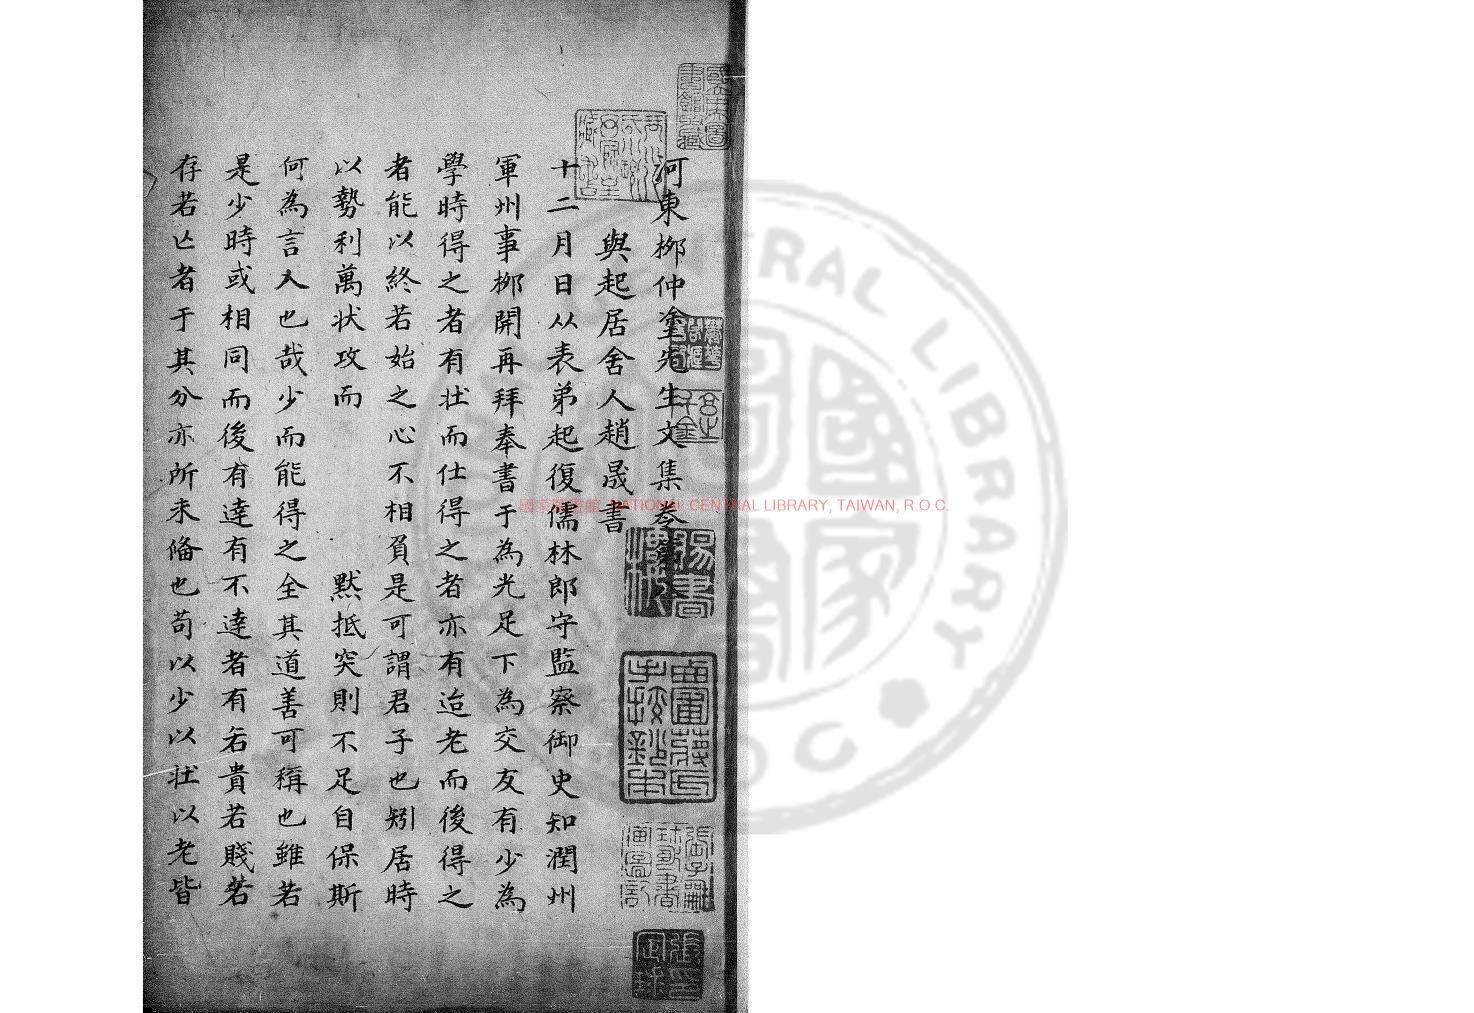 河東桺仲塗先生文集卷第八
與起居舍人趙晟書
十二月日從表弟起復儒林郎守監察御史知潤州
軍州事桺開再拜奉書于為光足下為交友有少為
學時得之者有壯而仕得之者亦有迨老而後得之
者能以終若始之心不相負是可謂君子也矧居時
以勢利萬狀攻而 默抵突則不足自保斯
何為言人也哉少而能得之全其道善可稱也雖若
是少時或相同而後有達有不達者有名貴若賤若
存若亡者于其分亦所未偹也苟以少以壯以老皆
國家圖書館 NATIONAL CENTRAL LIBRARY, TAIWAN, R.O.C.